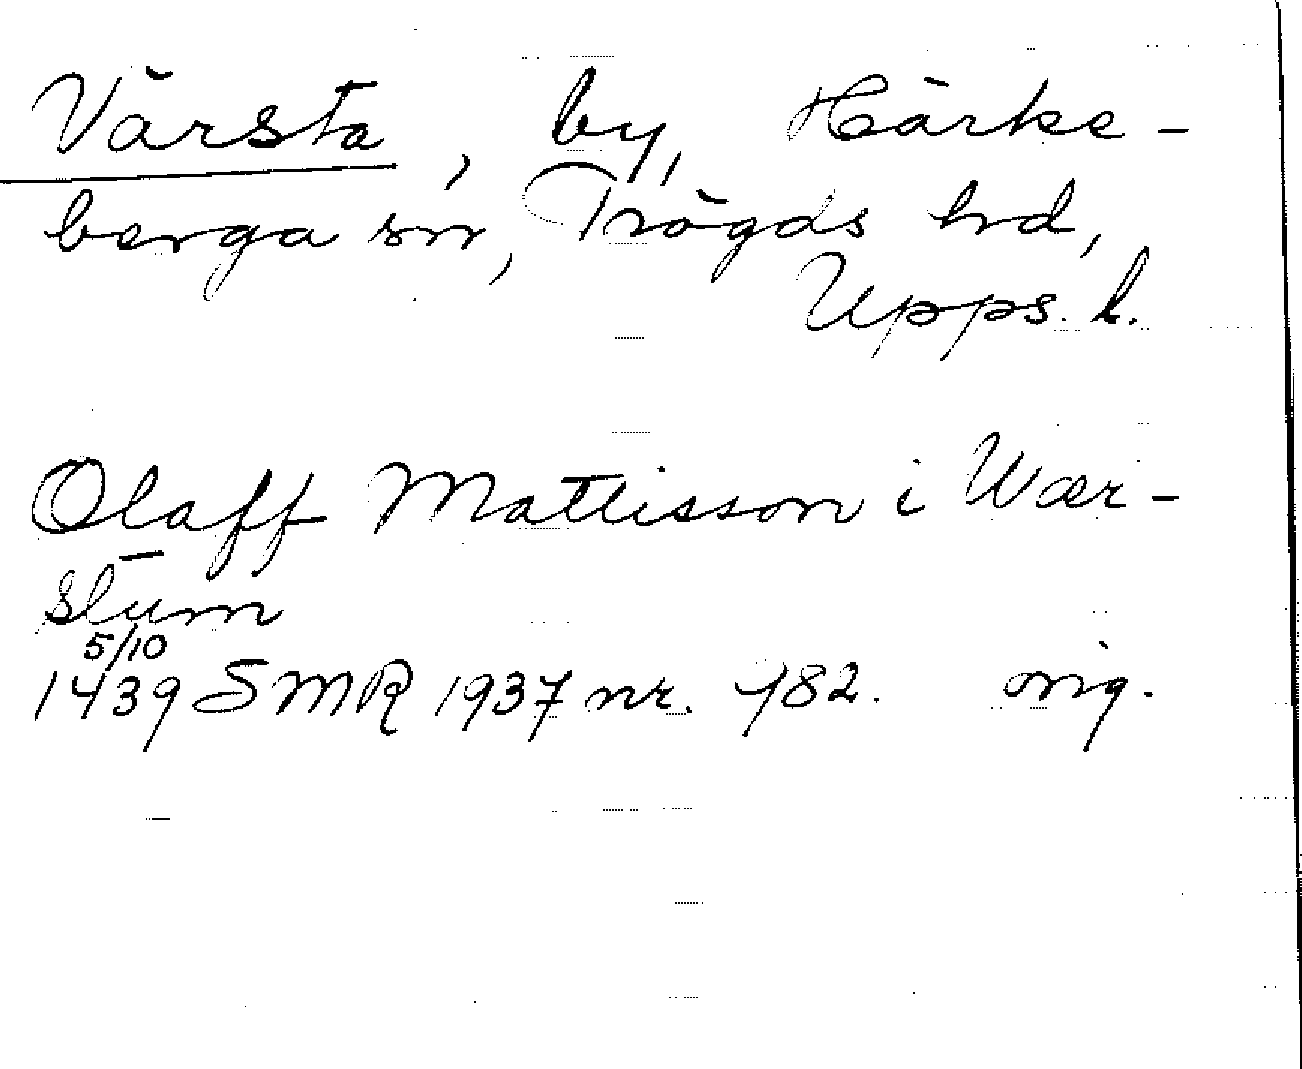 Värsta, by, Härke-
berga sn, Trögds hd,
Upps. l.
Olaff Mattisson i Wær-
stum
5/10
1439 SMR 1937 nr. 782. orig.